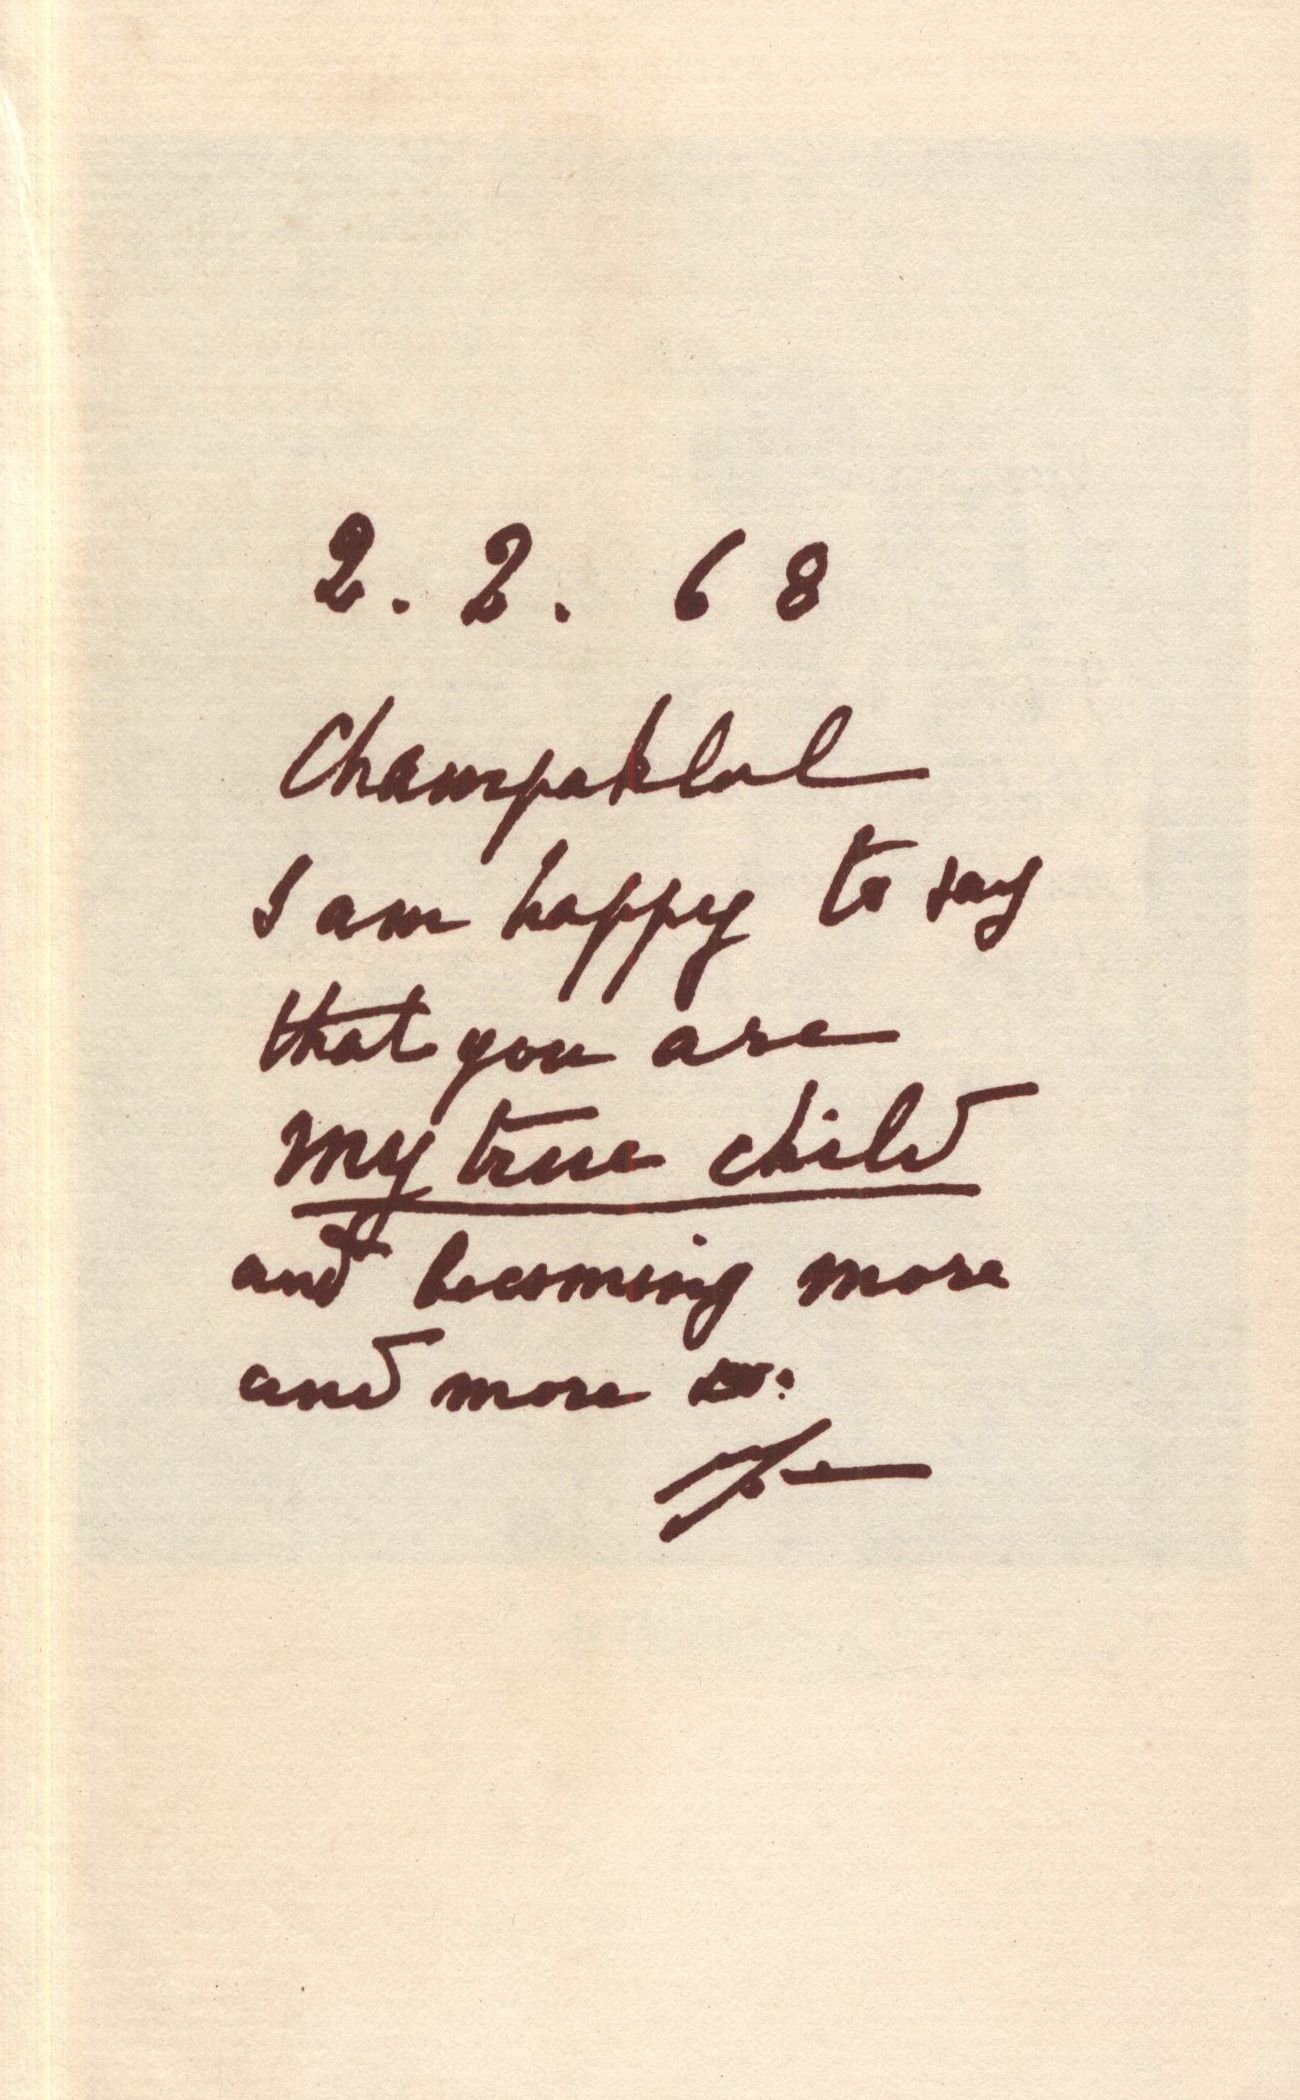 2. 2. 68
Champaklal
I am happy to say
that you are
my true child
and becoming more
and more so.